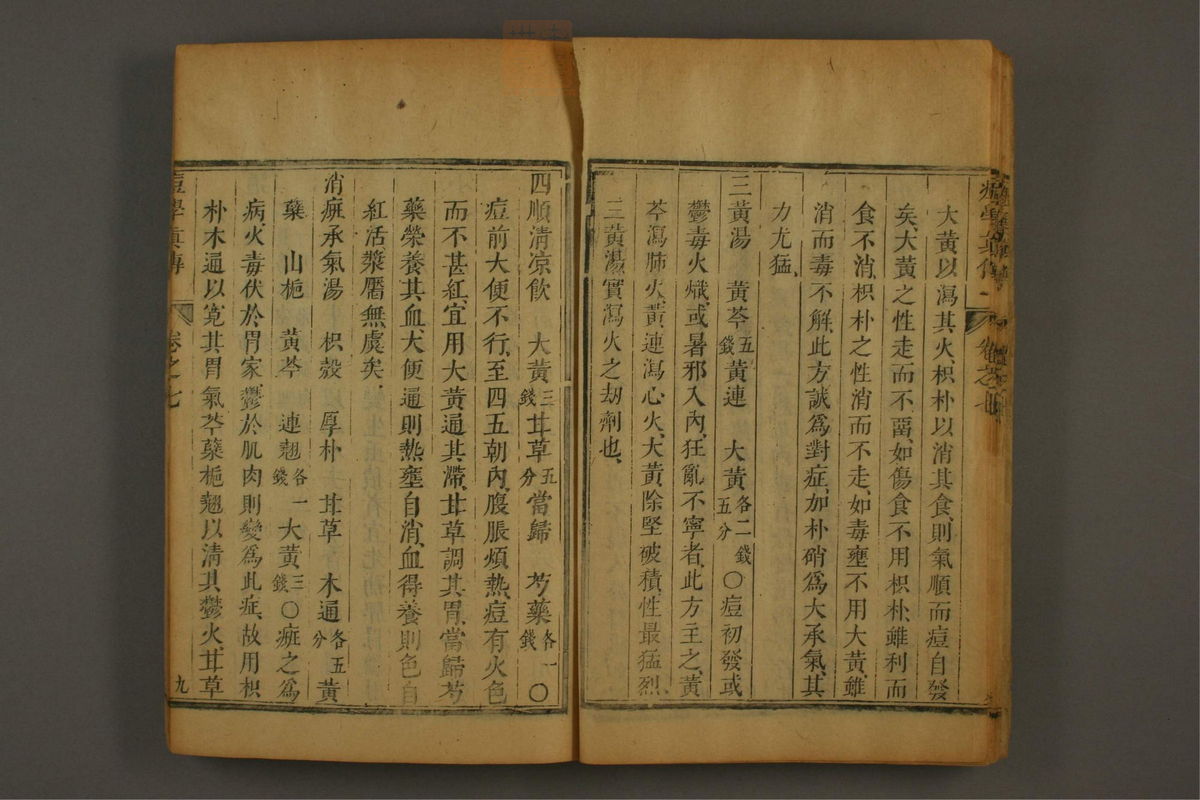 大黃以瀉其火、枳朴以消其食、則氣順而痘自發
矣、大黃之性走而不畱、如傷食不用枳朴、雖利而
食不消、枳朴之性消而不走、如毒壅不用大黃、雖
消而毒不解、此方誠爲對症、加朴硝爲大承氣、其
力尤猛、
三黃湯 黃芩五錢 黃連 大黃各二錢五分 〇痘初發或
鬱毒火熾、或暑邪入內、狂亂不寧者、此方主之、黃
芩瀉肺火、黃連瀉心火、大黃除堅破積、性最猛烈、
三黃湯實瀉火之刼劑也、
四順清凉飲 大黃三錢 甘草五分 當歸 芍藥各一錢 〇
痘前大便不行、至四五朝內、腹脹煩熱、痘有火色
而不甚紅、宜用大黃通其滯、甘草調其胃、當歸芍
藥榮養其血、大便通則熱壅自消、血得養則色自
紅活漿靨無虞矣、
消痘承氣湯 枳殼 厚朴 甘草 木通各五分 黃
蘗 山梔 黃芩 連翹各一錢 大黃三錢 〇痘之爲
病火毒伏於胃家鬱於肌肉則變爲此症、故用枳
朴木通以寬其胃氣芩蘗梔翹以清其鬱火甘草
痘學真傳 卷之七 九